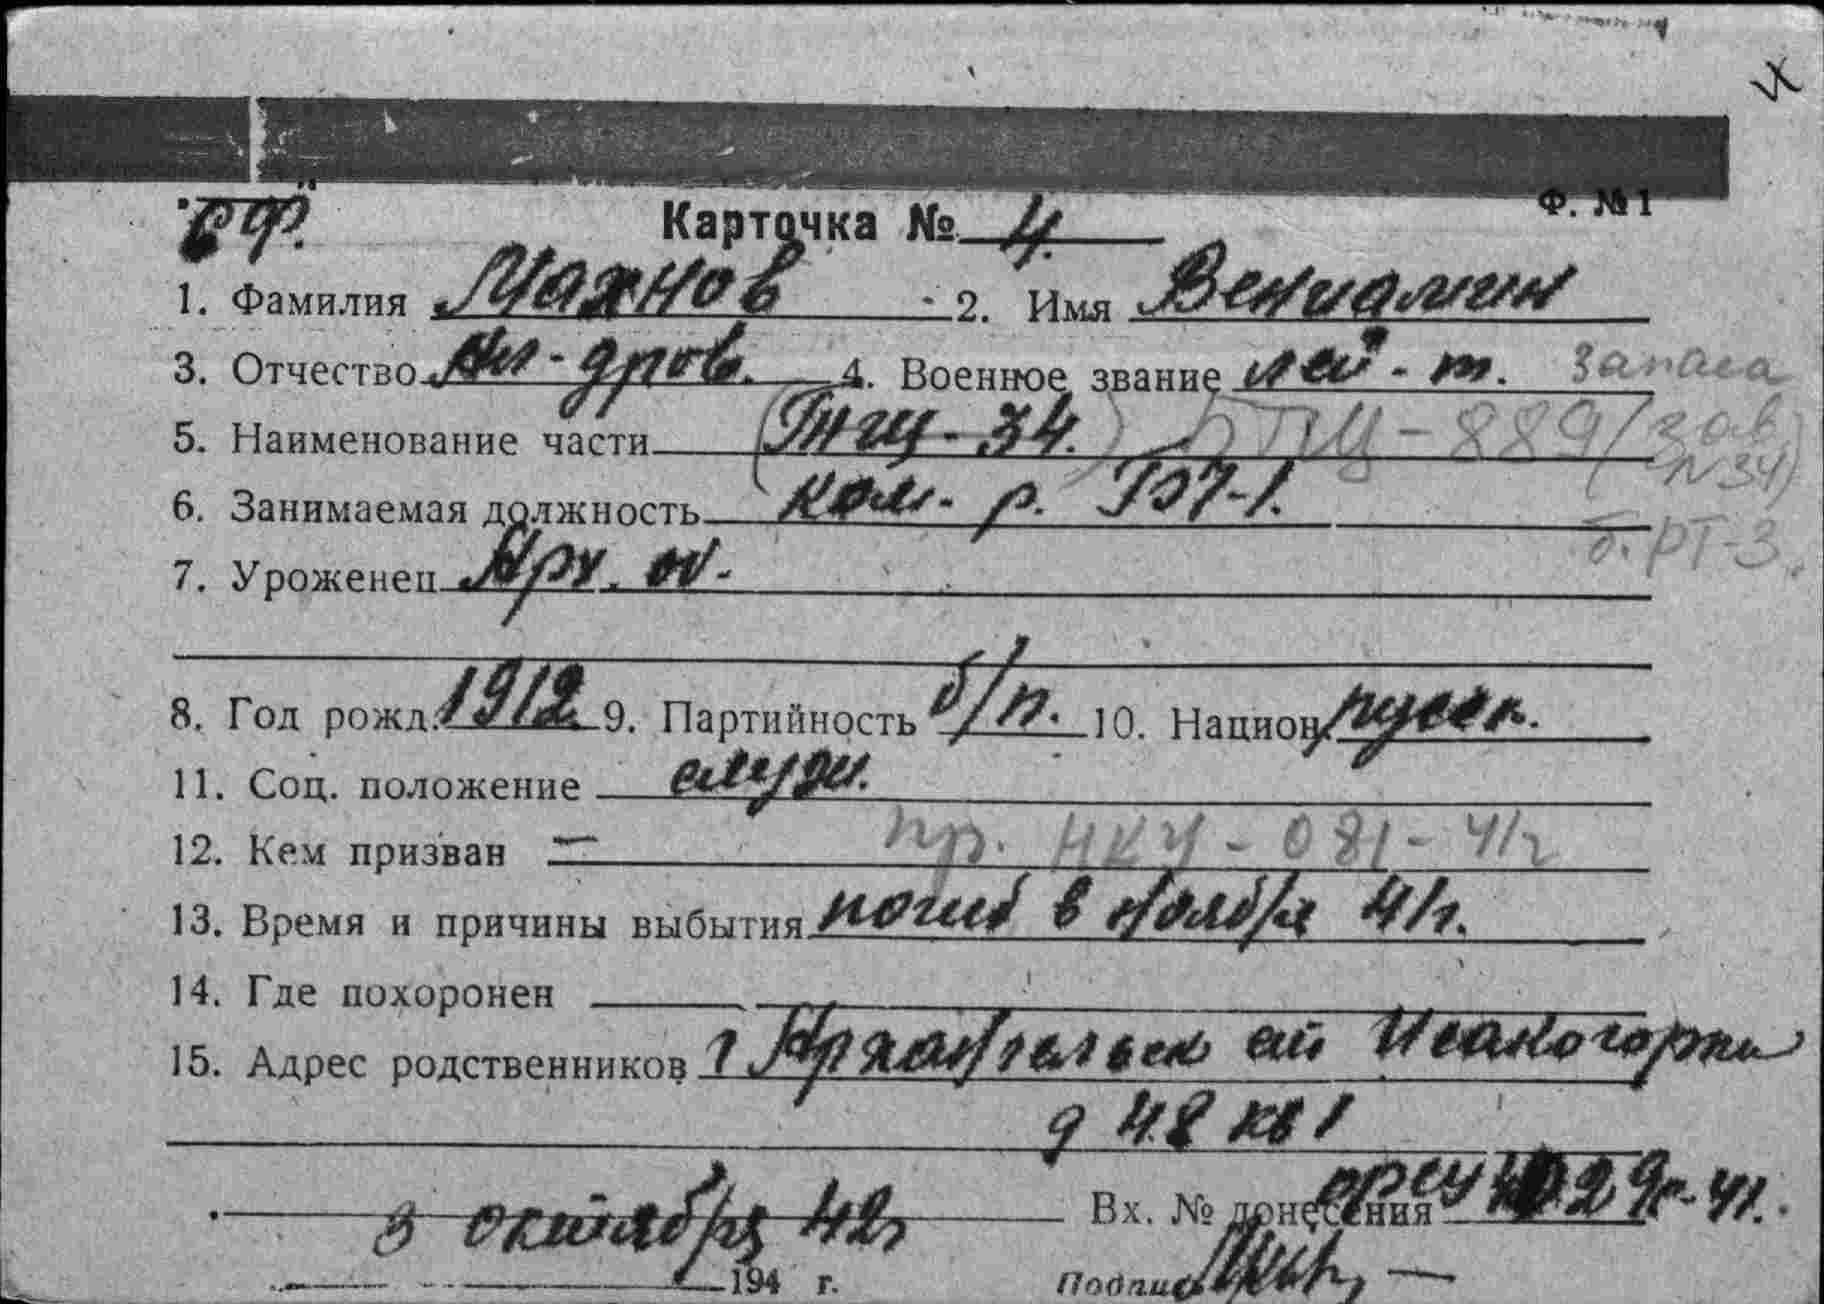 СФ.
Ф. №1
Карточка № 4.
1. Фамилия Махнов 2. Имя Вениамин
3. Отчество 4. Военное звание лей-т. запаса
5. Наименование части (ТЩ-34.) БТЩ-889/зав. №34)
6. Занимаемая должность ком. р. б. РТ-3.
7. Уроженец Арх.
8. Год рожд. 1912 9. Партийность б/п. 10. Национ. русск.
11. Соц. положение служ.
12. Кем призван — пр. НКУ-081-41г
13. Время и причины выбытия погиб в ноябре 41г.
14. Где похоронен
15. Адрес родственников г Архангельск ст Исакогорка
д 48 кв 1
3 октября 42г Вх. № донесения 41.
194 г. Подпись